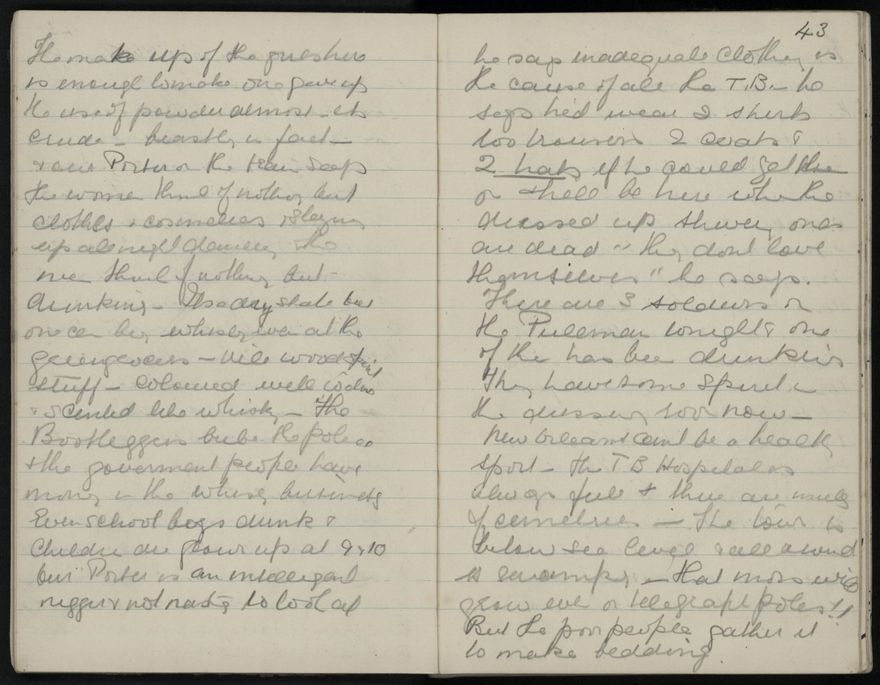 The make up of the girls here
is enough to make one give up
the use of powder almost - its
crude - beastly in fact -
& our Porter on the train says
the women think of nothing but
clothes & cosmetics & staying
up all night dancing the
men think of nothing but
drinking - Its a dry state but
one can buy whisky even at the
greengrocers - vile wood spirit
stuff - coloured with iodine
& scented like whisky - The
Bootleggers bribe the police
& the goverment people have
money in the whisky business
Even school boys drunk &
Children are grown up at 9 & 10
our Porter is an intelligent
nigger & not nasty to look at
43
he says inadequate clothing is
the cause of all the T.B. - he
says he'd wear 2 shirts
two trousers 2 coats &
2 hats if he could get them
or & he'll be here when the
dressed up showy ones
are dead - "they dont love
themselves" he says.
There are 3 soldiers on
the Pullman tonight & one
of the has been drinking
They have some spirit in
the dressing room now -
New Orleans cant be a healthy
spot - the T B Hospital is
always full & there are
of cemetries - The town is
below sea level & all around
is swamps - that moss will
grow even on telegraph poles!!
But the poor people gather it
to make bedding.